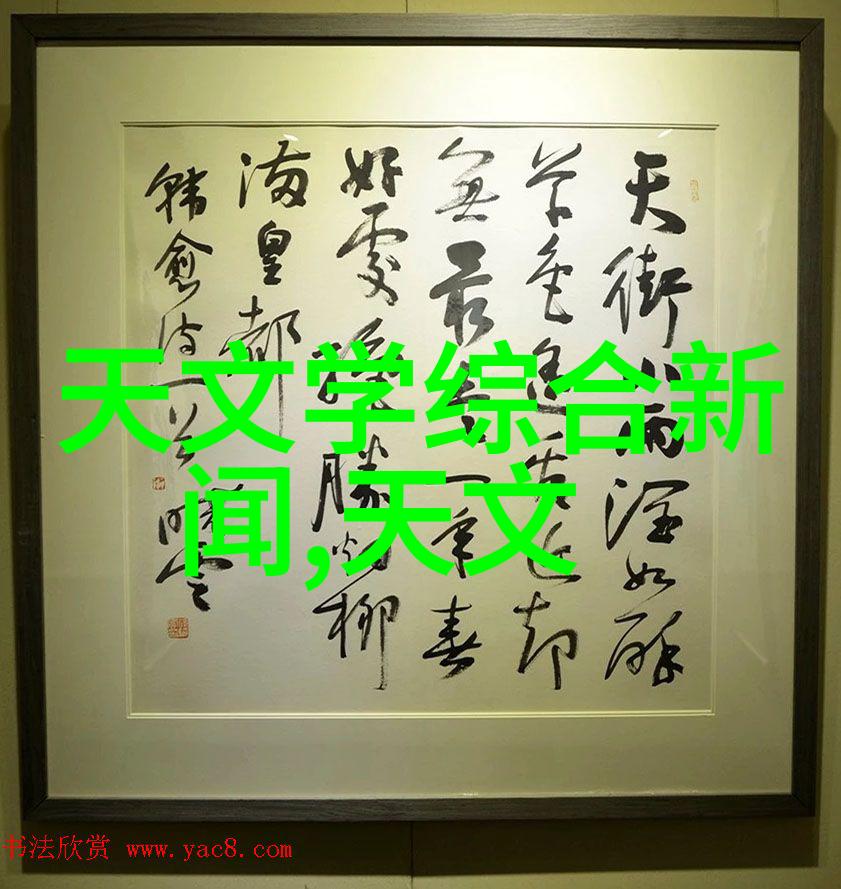 天街小雨潤如酥
草色遥看近却
無最是一年春
好處絶勝烟柳
滿皇都
韓愈诗一首
天文学综合新
闻,天文
书法欣赏 www.yac8.com